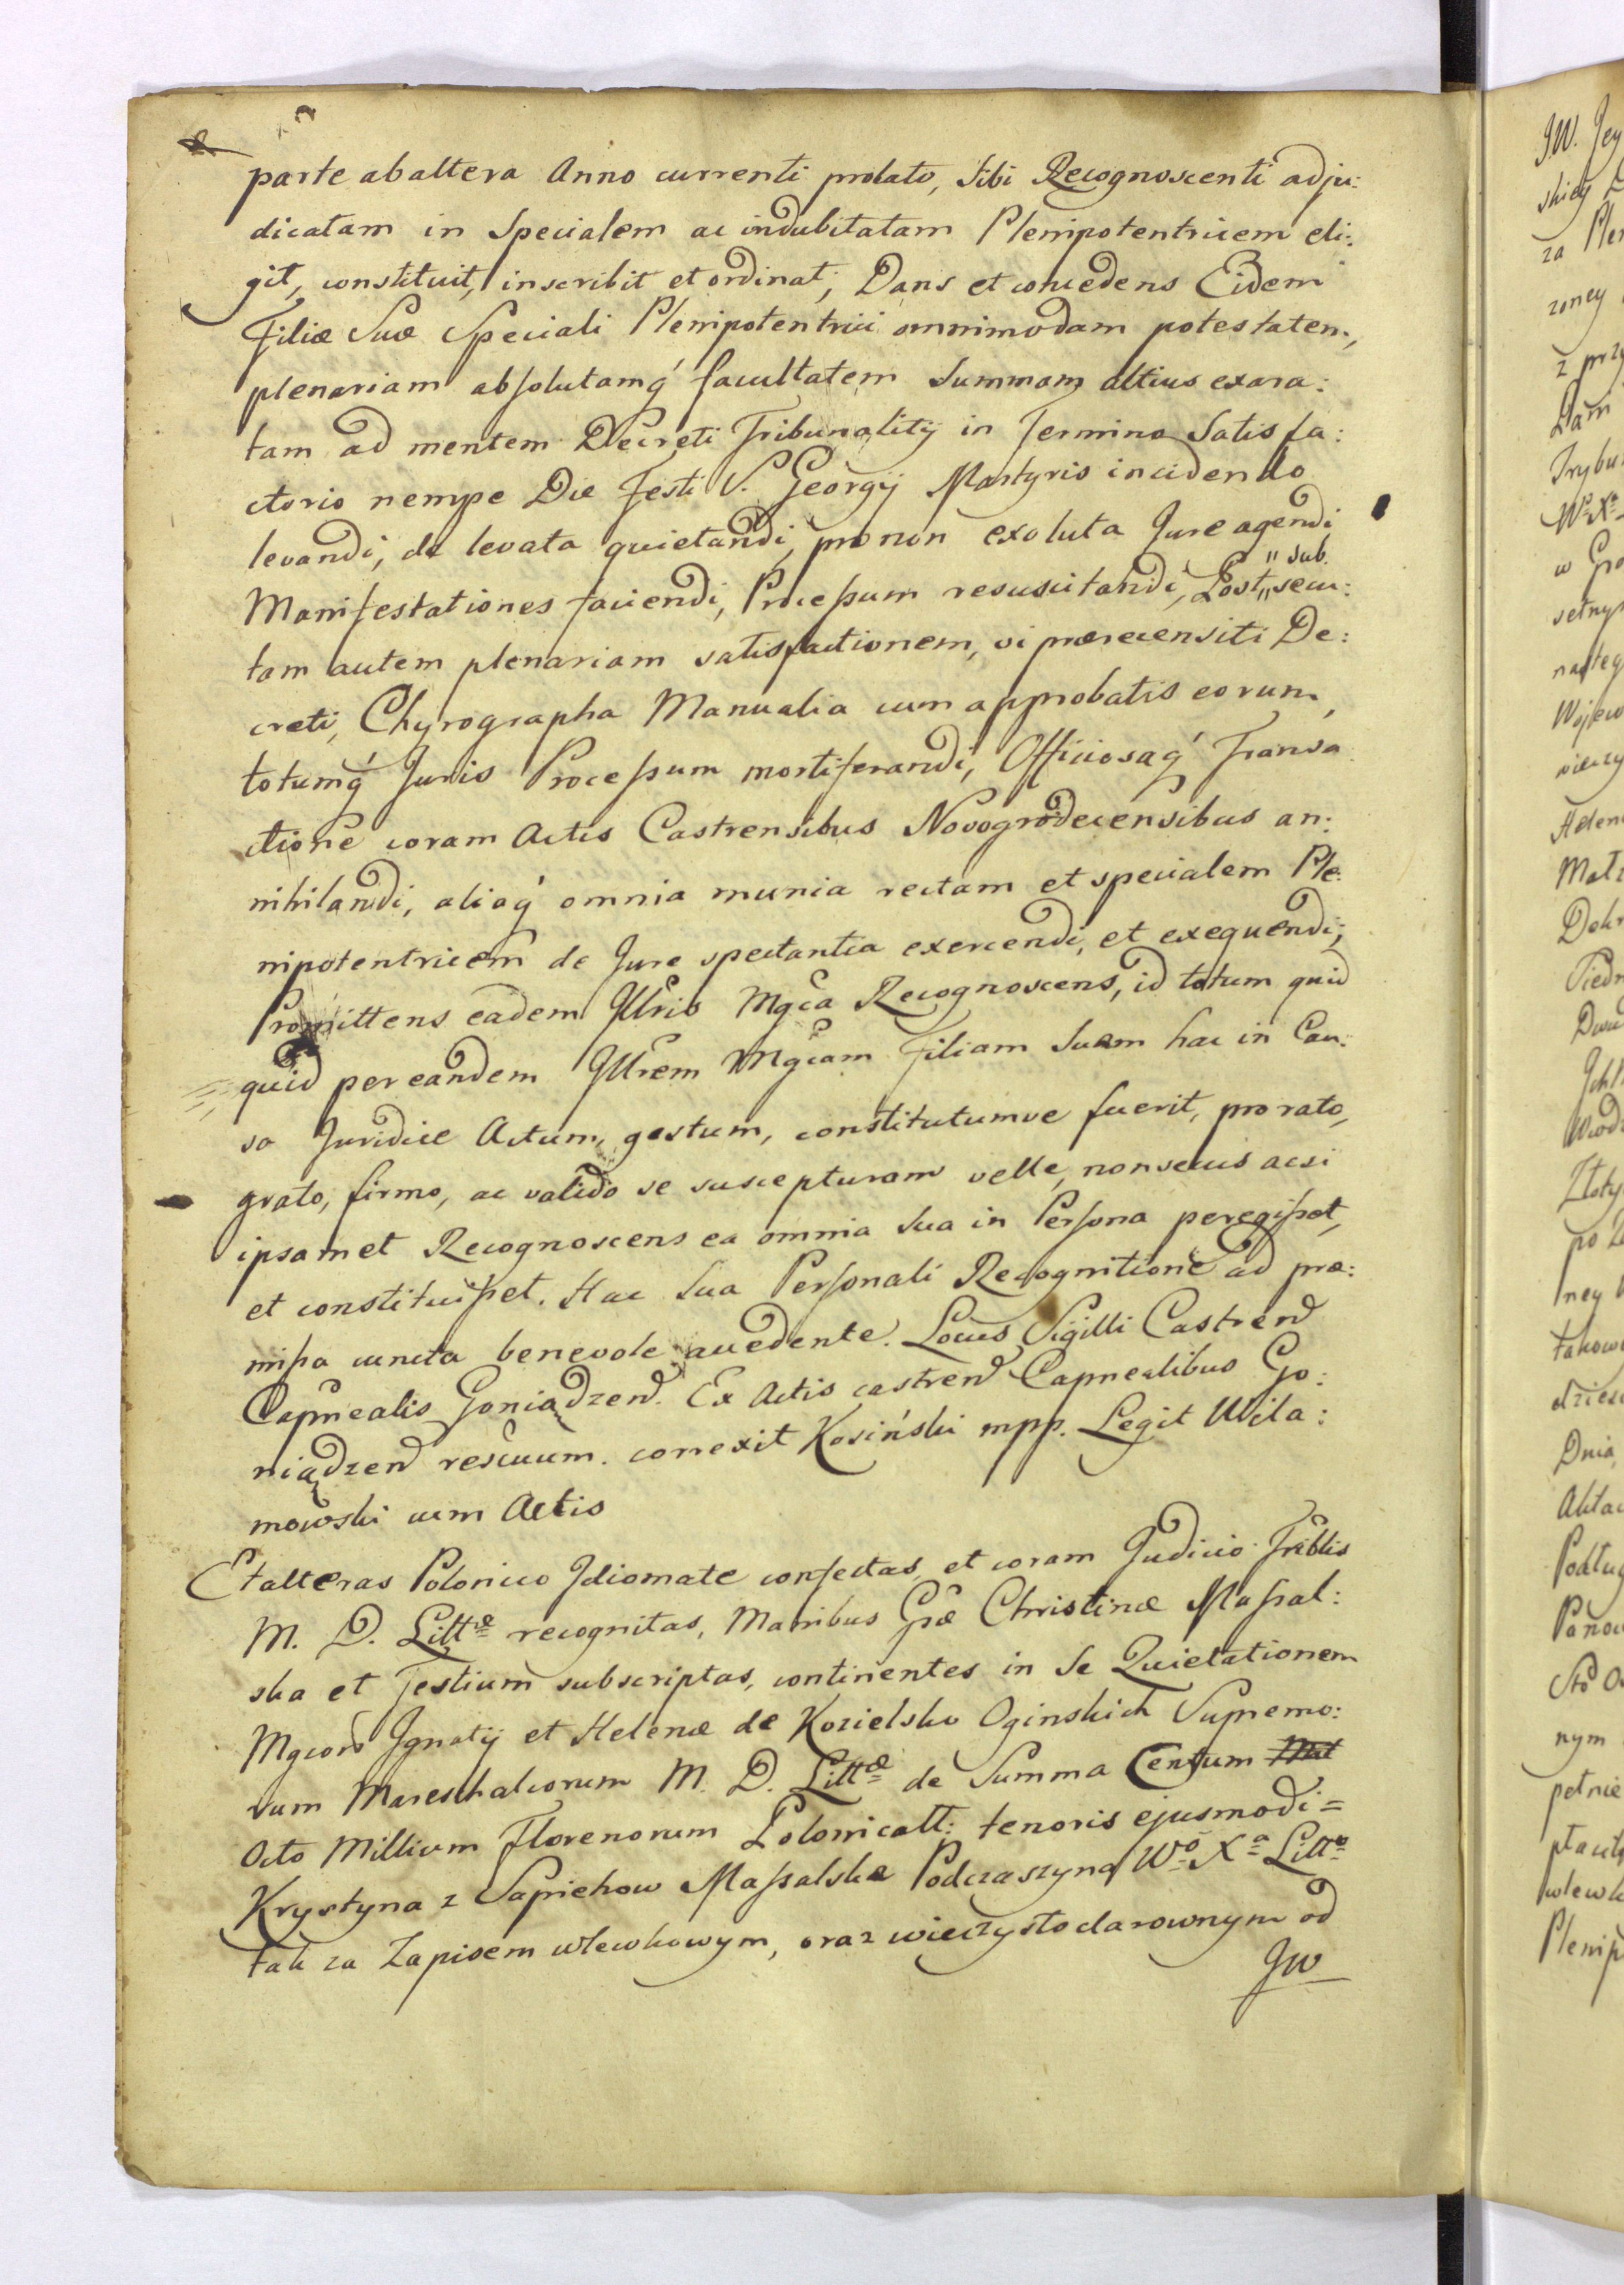 parte ab altera Anno currenti prolato, sibi Recognoscenti adju:
dicatam in Specialem ac indubitatam Plenipotentricem eli:
git, constituit, inscribit et ordinat, Dans et concedens Eidem
Filiæ Suæ Speciali Plenipotentrici omnimodam potestatem,
plenariam absolutamq́ facultatem Summam altius exara:
tam ad mentem Decreti Tribunalitij in Termino Satisfa:
ctorio nempe Die Festi S. Georgij Martyris incidendo
levandi, de levata quietandi, pro non exoluta Jure agendi
Manifestationes faciendi, Processum resuscitandi, Post "sub" secu:
tam autem plenariam satisfactionem, vi prærecensiti De:
creti, Chyrographa Manualia cum approbatis eorum,
totumq́ Juris Processum mortiferandi, Officiosaq́ Transa
ctione coram Actis Castrensibus Novogrodecensibus an:
nihilandi, aliaq́ omnia munia rectam et specialem Ple:
nipotentricem de Jure spectantia exercendi, et exequendi;
Promittens eadem Jllris Mgca Recognoscens, id totum quid
quid per eandem Jllrem Mgcam Filiam Suam hac in Cau:
sa Juridice Actum, gestum, constitutumve fuerit, pro rato,
grato, firmo, ac valido se suscepturam velle, non secus acsi
ipsamet Recognoscens ea omnia Sua in Persona peregisset,
et constituisset. Hac Sua Personali Recognitione ad præ:
missa cuncta benevole accedente. Locus Sigilli Castrend
Capnealis Goniądzend. Ex Actis castrend Capnealibus Go:
niądzend rescuum. correxit Kosiński mpp. Legit Wila:
mowski cum Actis
Et alteras Polonico Jdiomate confectas, et coram Judicio Triblis
M. D. Littæ recognitas, Manibus Gsæ Christinæ Massal:
ska et Testium subscriptas, continentes in Se Quietationem
Mgcors Jgnatij et Helenæ de Kozielsko Oginskich Supremo:
rum Mareschalcorum M. D. Littæ de Summa Centum
Octo Millium Florenorum Polonicall: tenoris ejusmodi =
Krystyna z Sapiehow Massalska Podczaszyna Wo Xa Litto
tak za Zapisem wlewkowym, oraz wieczysto darownym od
JW